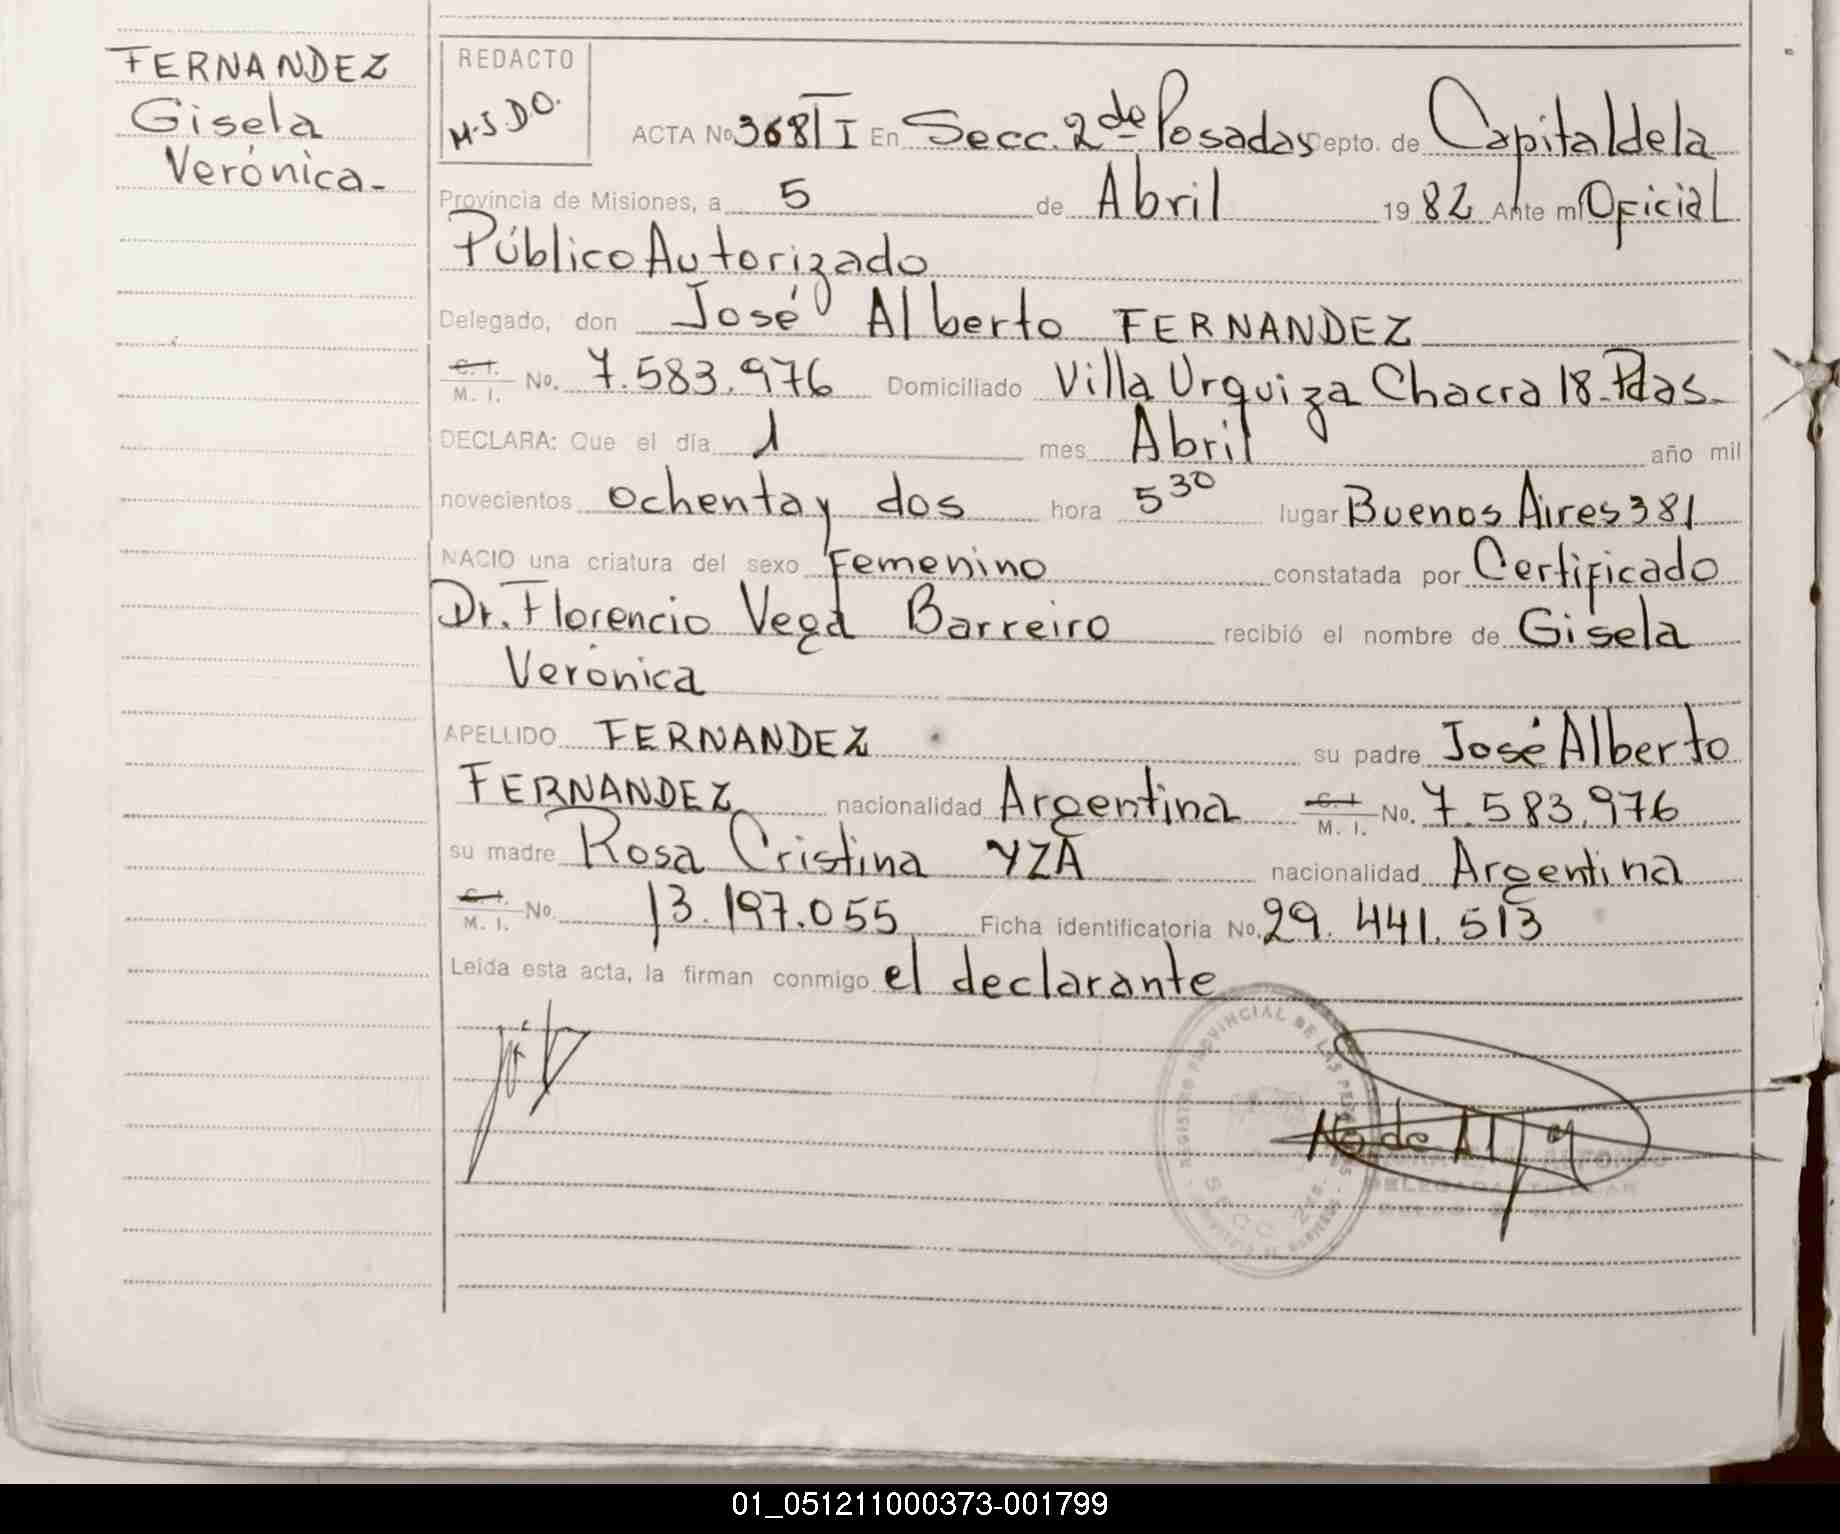 FERNANDEZ
Gisela
Verónica-
REDACTO
M.S.DO.
ACTA No 368 T I En Secc. 2 de Posadas epto. de Capital de la
Provincia de Misiones, a 5 de Abril 19 82 Ante mi Oficial
Público Autorizado
Delegado, don José Alberto FERNANDEZ
C. I. M. I. No. 7.583.976 Domiciliado Villa Urquiza Chacra 18-Pdas-
DECLARA: Que el día 1 mes Abril año mil
novecientos ochenta y dos hora 5 30 lugar Buenos Aires 381
NACIO una criatura del sexo Femenino constatada por Certificado
Dr. Florencio Vega Barreiro recibió el nombre de Gisela
Verónica
APELLIDO FERNANDEZ su padre José Alberto
FERNANDEZ nacionalidad Argentina C. I. M. I. No. 7.583.976
su madre Rosa Cristina YZA nacionalidad Argentina
C. I. M. I. No. 13.197.055 Ficha identificatoria No. 29.441.513
Leída esta acta, la firman conmigo el declarante
REGISTRO PROVINCIAL DE LAS PERSONAS
SECC. 2da.
DELEGADA TITULAR
01_051211000373-001799